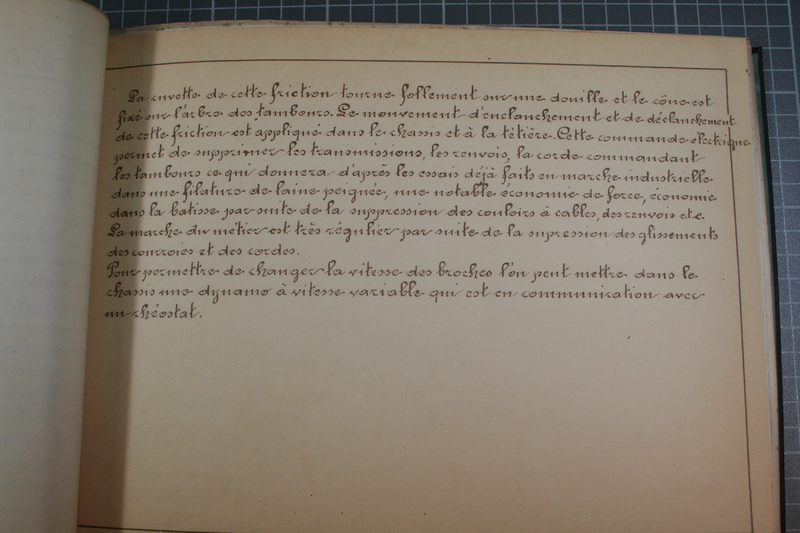 La cuvette de cette friction tourne follement sur une douille et le cône est
fixé sur l'arbre des tambours. Le mouvement d'enclanchement et de déclanchement
de cette friction est appliqué dans le chassis et à la têtière. Cette commande électrique
permet de supprimer les transmissions, les renvois, la corde commandant
les tambours ce qui donnera d'après les essais déjà faits en marche industrielle
dans une filature de laine peignée, une notable économie de force, économie
dans la batisse par suite de la suppression des couloirs à cables, des renvois etc.
La marche du métier est très régulier par suite de la supression des glissements
des courroies et des cordes.
Pour permettre de changer la vitesse des broches l'on peut mettre dans le
chassis une dynamo à vitesse variable qui est en communication avec
un rhéostat.